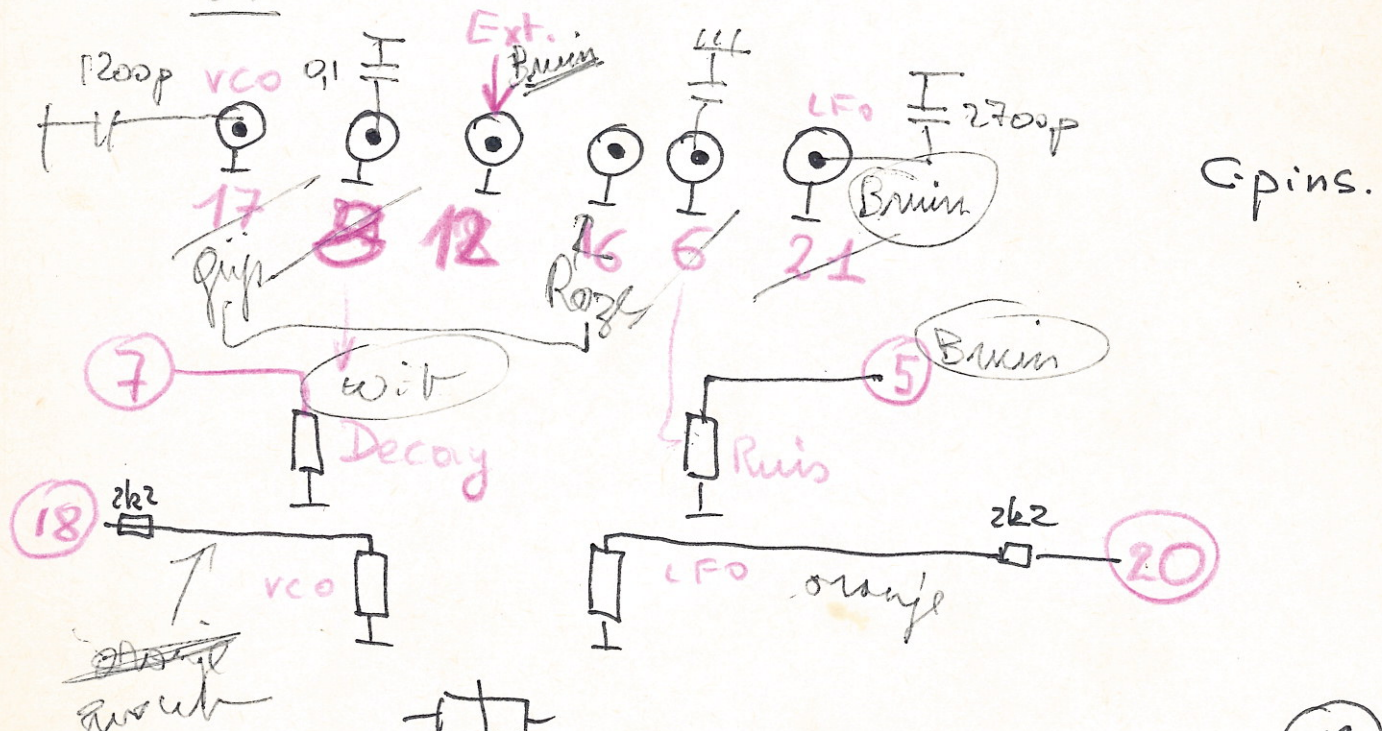 1200p VCO 0,1 Ext. Bruin LFO 2700p
C-pins.
17 8 12 16 6 21 Bruin
Grijs Roze
7 wit 5 Bruin
Decay Ruis
18 2k2 2k2 20
VCO LFO oranje
oranje